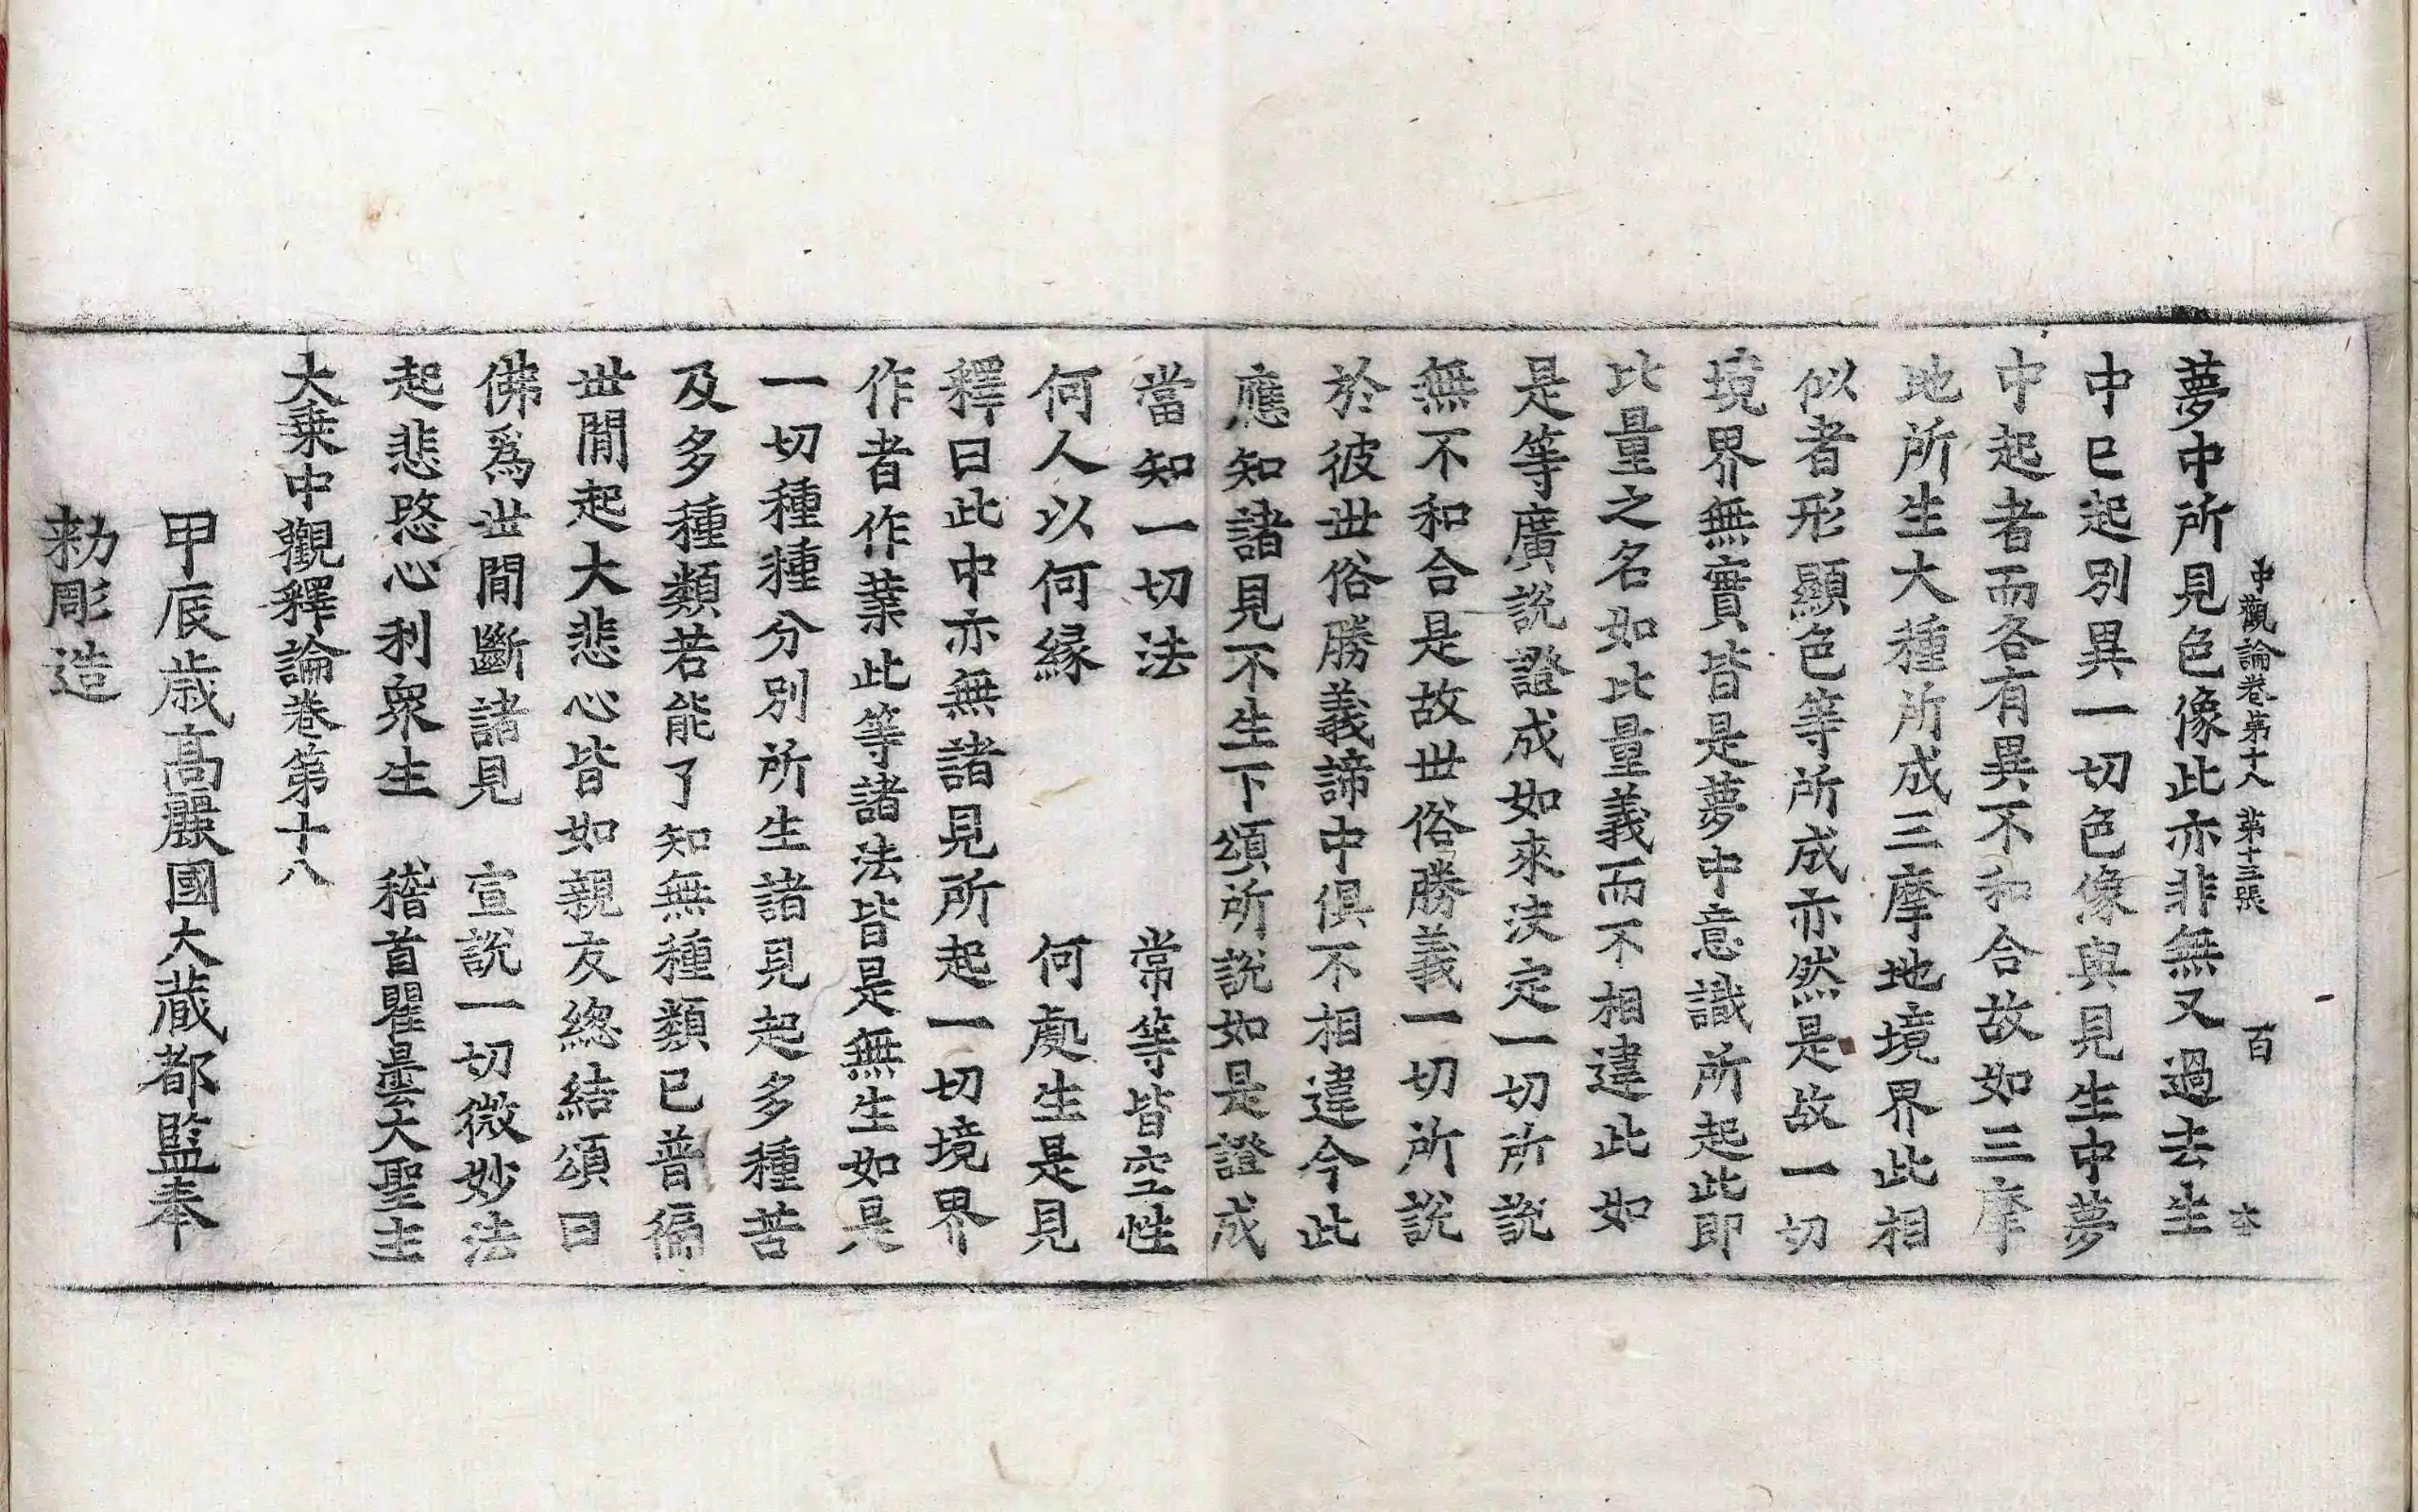 中觀論卷第十八 第十三張 百 本
夢中所見色像此亦非無又過去生
中已起別異一切色像與見生中夢
中起者而各有異不和合故如三摩
地所生大種所成三摩地境界此相
似者形顯色等所成亦然是故一切
境界無實皆是夢中意識所起此即
比量之名如比量義而不相違此如
是等廣說證成如來決定一切所說
無不和合是故世俗勝義一切所說
於彼世俗勝義諦中俱不相違今此
應知諸見不生下頌所說如是證成
當知一切法 常等皆空性
何人以何緣 何處生是見
釋曰此中亦無諸見所起一切境界
作者作業此等諸法皆是無生如是
一切種種分別所生諸見起多種苦
及多種類若能了知無種類已普徧
世間起大悲心皆如親友總結頌曰
佛為世間斷諸見 宣說一切微妙法
起悲愍心利衆生 稽首瞿曇大聖主
大乗中觀釋論卷第十八
甲辰歳高麗國大藏都監奉
勑彫造